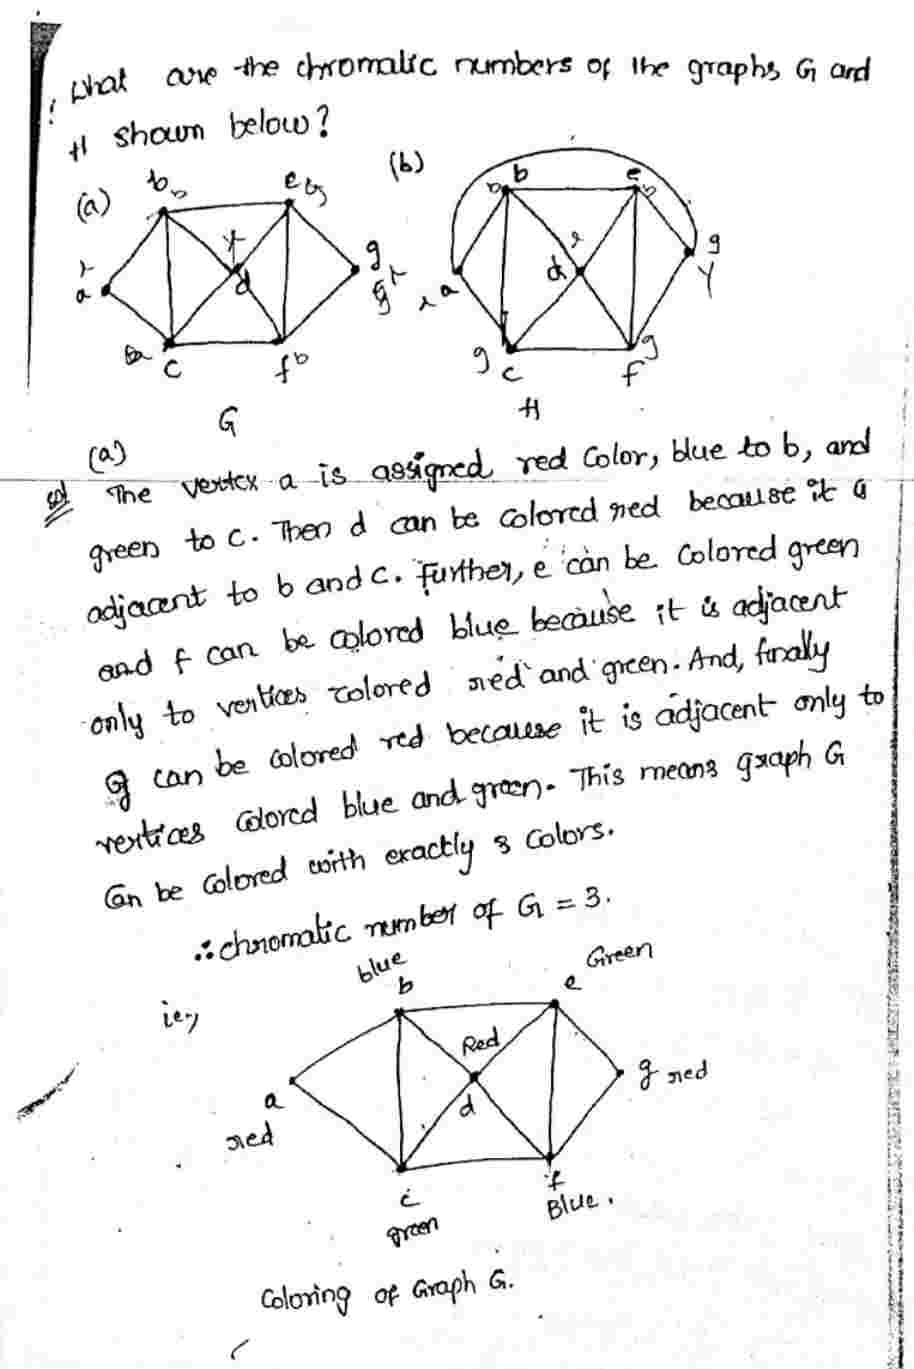 What are the chromatic numbers of the graphs G and
H shown below?
(a)
(b)
b b
e
g
r
a
r
d
g
r
c
f b
b b
e b
g
r a
r
d
g
c
g
f
G
H
(a)
Sol
The vertex a is assigned red color, blue to b, and
green to c. Then d can be colored red because it is
adjacent to b and c. Further, e can be colored green
and f can be colored blue because it is adjacent
only to vertices colored red and green. And, finally
g can be colored red because it is adjacent only to
vertices colored blue and green. This means graph G
Can be colored with exactly 3 colors.
∴ chromatic number of G = 3.
ie.,
blue
b
Green
e
Red
d
a
red
g red
c
green
f
Blue.
Coloring of Graph G.